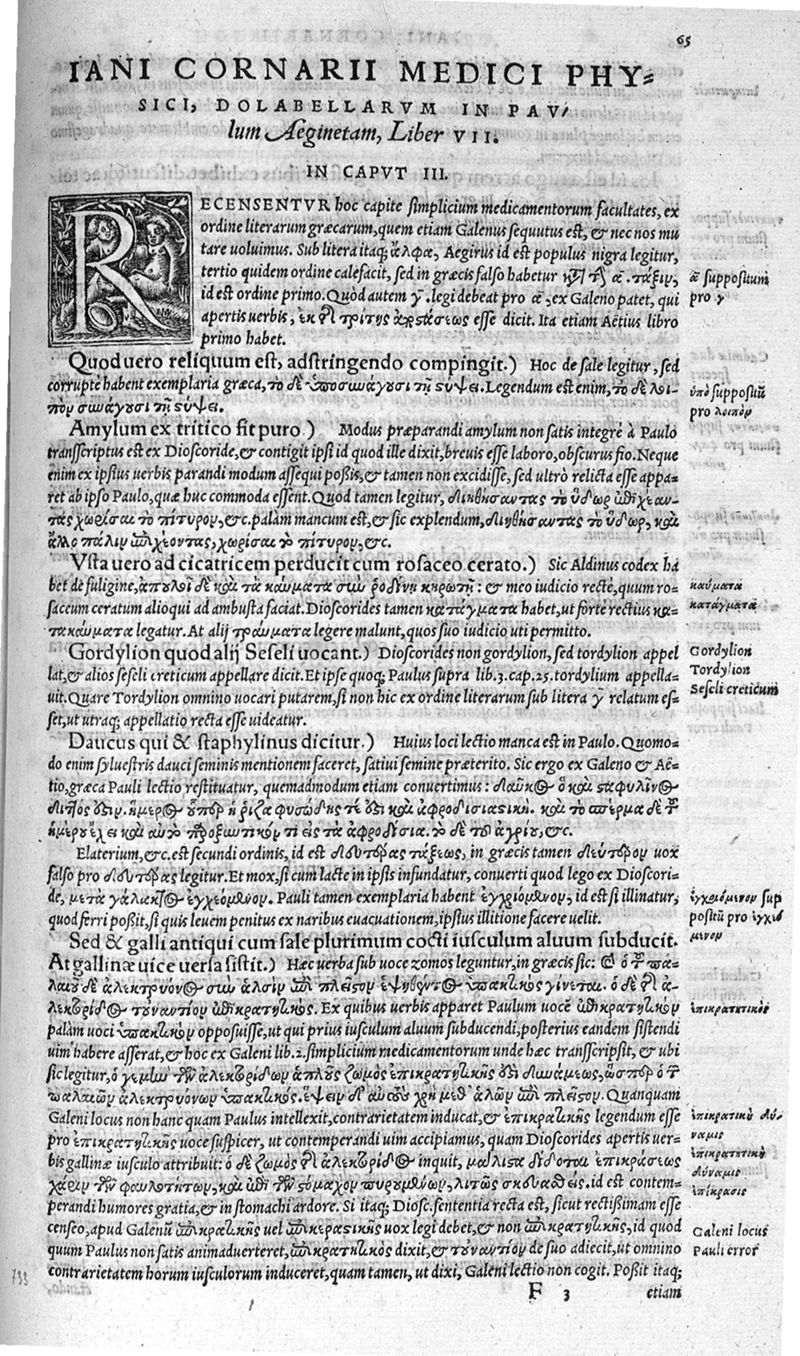 65
IANI CORNARII MEDICI PHY=
SICI, DOLABELLARVM IN PAV/
lum Aeginetam, Liber VII.
IN CAPVT III.
RECENSENTVR hoc capite simplicium medicamentorum facultates, ex
ordine literarum græcarum, quem etiam Galenus sequutus est, & nec nos mu
tare voluimus. Sub litera itaq; ἄλφα, Aegirus id est populus nigra legitur,
tertio quidem ordine calefacit, sed in græcis falso habetur α. τάξιν,
id est ordine primo. Quòd autem γ. legi debeat pro α, ex Galeno patet, qui
apertis verbis, ἐκ τῆς τρίτης esse dicit. Ita etiam Aëtius libro
primo habet.
α suppositum
pro γ
Quod uero reliquum est, adstringendo compingit.) Hoc de sale legitur, sed
corrupte habent exemplaria græca, τὸ δὲ ὑποσυνάγουσι τῇ ϛύψει. Legendum est enim, τὸ δὲ λοι-
πὸν συνάγουσι τῇ ϛύψει.
ὑπὸ suppositũ
pro λοιπὸν
Amylum ex tritico fit puro.) Modus præparandi amylum non satis integrè à Paulo
transscriptus est ex Dioscoride, & contigit ipsi id quod ille dixit, breuis esse laboro, obscurus fio. Neque
enim ex ipsius uerbis parandi modum assequi poßis, & tamen non excidisse, sed ultrò relicta esse appa=
ret ab ipso Paulo, quæ huc commoda essent. Quod tamen legitur, διηθήσαντας τὸ ὕδωρ ἐπιχέαν-
τας χωρίσαι τὸ πίτυρον, &c. palàm mancum est, & sic explendum, διηθήσαντας τὸ ὕδωρ, καὶ
ἄλλο πάλιν ἐπιχέοντας, χωρίσαι τὸ πίτυρον, &c.
Vsta uero ad cicatricem perducit cum rosaceo cerato.) Sic Aldinus codex ha
bet de fuligine, ἀπουλοῖ δὲ καὶ τὰ καύματα σὺν ῥοδίνῃ κηρωτῇ: & meo iudicio recte, quum ro=
saceum ceratum alioqui ad ambusta faciat. Dioscorides tamen κατάγματα habet, ut forte rectius κα=
τακαύματα legatur. At alij τραύματα legere malunt, quos suo iudicio uti permitto.
καύματα
κατάγματα
Gordylion quod alij Seseli uocant.) Dioscorides non gordylion, sed tordylion appel
lat, & alios seseli creticum appellare dicit. Et ipse quoq; Paulus supra lib. 3. cap. 25. tordylium appella=
uit. Quare Tordylion omnino vocari putarem, si non hic ex ordine literarum sub litera γ relatum es=
set, ut utraq; appellatio recta esse uideatur.
Gordylion
Tordylion
Seseli creticum
Daucus qui & staphylinus dicitur.) Huius loci lectio manca est in Paulo. Quomo=
do enim syluestris dauci seminis mentionem faceret, satiui semine præterito. Sic ergo ex Galeno & Aë=
tio, græca Pauli lectio restituatur, quemadmodum etiam conuertimus: δαῦκος ὁ καὶ ϛαφυλῖνος
διττός ἐϛιν. ἥμερος ὅπερ ἡ ῥίζα φυσώδης τέ ἐϛι καὶ ἀφροδισιαϛική. καὶ τὸ σπέρμα δὲ τοῦ
ἡμέρου ἔχει καὶ αὐτὸ τι εἰς τὰ ἀφροδίσια. τὸ δὲ τοῦ ἀγρίου, &c.
Elaterium, &c. est secundi ordinis, id est δευτέρας τάξεως, in græcis tamen δεύτερον uox
falso pro δευτέρας legitur. Et mox, si cum lacte in ipsis infundatur, conuerti quod lego ex Dioscori=
de, μετὰ γάλακτος ἐγχεόμενον. Pauli tamen exemplaria habent ἐγχριόμενον, id est si illinatur,
quod ferri poßit, si quis leuem penitus ex naribus euacuationem, ipsius illitione facere uelit.
ἐγχριόμενον sup
positũ pro ἐγχεό
μενον
Sed & galli antiqui cum sale plurimum cocti iusculum aluum subducit.
At gallinæ uice uersa sistit.) Hæc uerba sub uoce zomos leguntur, in græcis sic: ὁ τοῦ πα=
λαιοῦ δὲ ἀλεκτρυόνος σὺν ἁλσὶν ἐπὶ πλεῖϛον ἑψηθέντος ὑπακτικὸς γίνεται. ὁ δὲ τῆς ἀ=
λεκτορίδος τοὐναντίον ἐπικρατητικός. Ex quibus uerbis apparet Paulum uocẽ ἐπικρατητικὸν
palàm uoci ὑπακτικὸν opposuisse, ut qui prius iusculum aluum subducendi, posterius eandem sistendi
uim habere asserat, & hoc ex Galeni lib. 2. simplicium medicamentorum unde hæc transscripsit, & ubi
sic legitur, ὁ γε μὴν τῶν ἀλεκτορίδων ἁπλοῦς ζωμὸς ἐπικρατητικῆς ἐϛι δυνάμεως, ὥσπερ ὁ τῶν
παλαιῶν ἀλεκτρυόνων ὑπακτικός. ἕψειν δ' αὐτοὺς χρὴ μεθ' ἁλῶν ἐπὶ πλεῖϛον. Quanquam
Galeni locus non hanc quam Paulus intellexit, contrarietatem inducat, & ἐπικρατικῆς legendum esse
pro ἐπικρατητικῆς uoce suspicer, ut contemperandi uim accipiamus, quam Dioscorides apertis uer=
bis gallinæ iusculo attribuit: ὁ δὲ ζωμὸς τῆς ἀλεκτορίδος inquit, μάλιϛα δίδοται ἐπικράσεως
χάριν τῶν φαυλοτήτων, καὶ ἐπὶ τῶν ϛόμαχον πυρουμένων, λιτῶς σκευασθείς, id est contem=
perandi humores gratia, & in stomachi ardore. Si itaq; Diosc. sententia recta est, sicut rectißimam esse
censeo, apud Galenũ ἐπικρατικῆς uel ἐπικεραϛικῆς uox legi debet, & non ἐπικρατητικῆς, id quod
quum Paulus non satis animaduerteret, ἐπικρατητικὸς dixit, & τοὐναντίον de suo adiecit, ut omnino
contrarietatem horum iusculorum induceret, quam tamen, ut dixi, Galeni lectio non cogit. Poßit itaq;
ἐπικρατητικὸς
ἐπικρατικὴ δύ-
ναμις
ἐπικρατητικὴ
δύναμις
ἐπίκρασις
Galeni locus
Pauli error
F 3 etiam
733